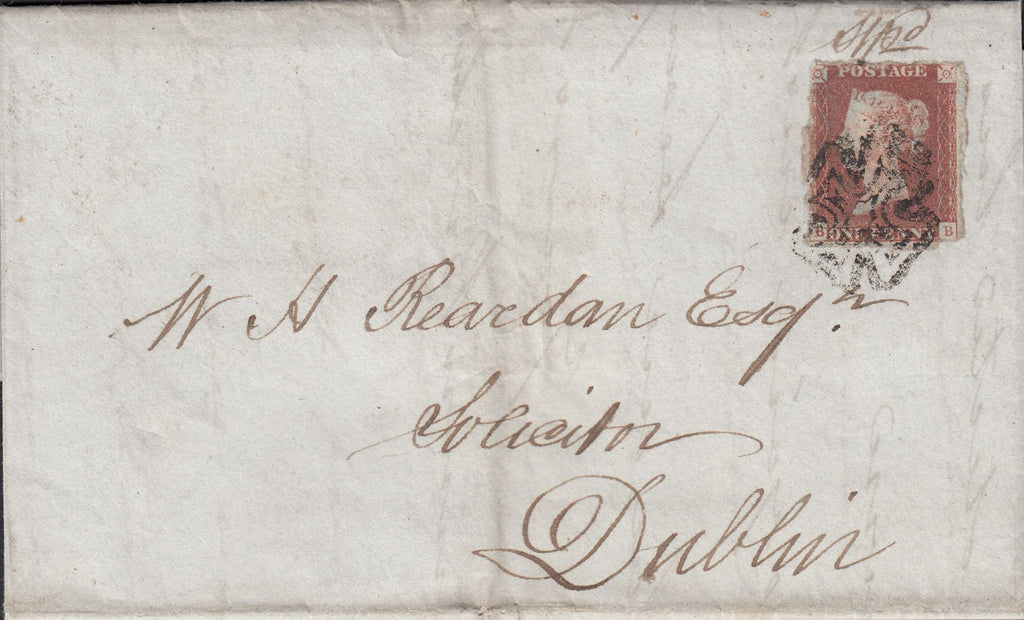 Stpd
POSTAGE
W H Reardan Esqr.
Solicitor
Dublin
B ONE PENNY B